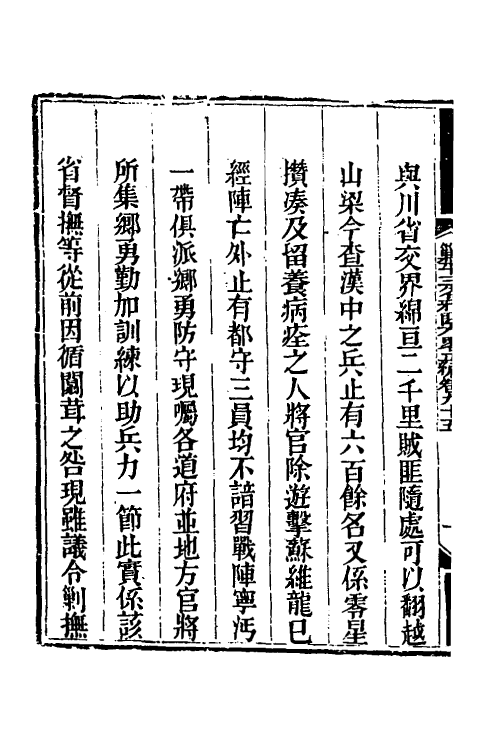 與川省交界綿亘二千里賊匪隨處可以翻越
山梁今查漢中之兵止有六百餘名又係零星
攢凑及留養病痊之人將官除遊擊蘇維龍已
經陣亡外止有都守三員均不諳習戰陣寧沔
一帶俱派鄉勇防守現囑各道府並地方官將
所集鄉勇勤加訓練以助兵力一節此實係該
省督撫等從前因循闒茸之咎現雖議令剿撫